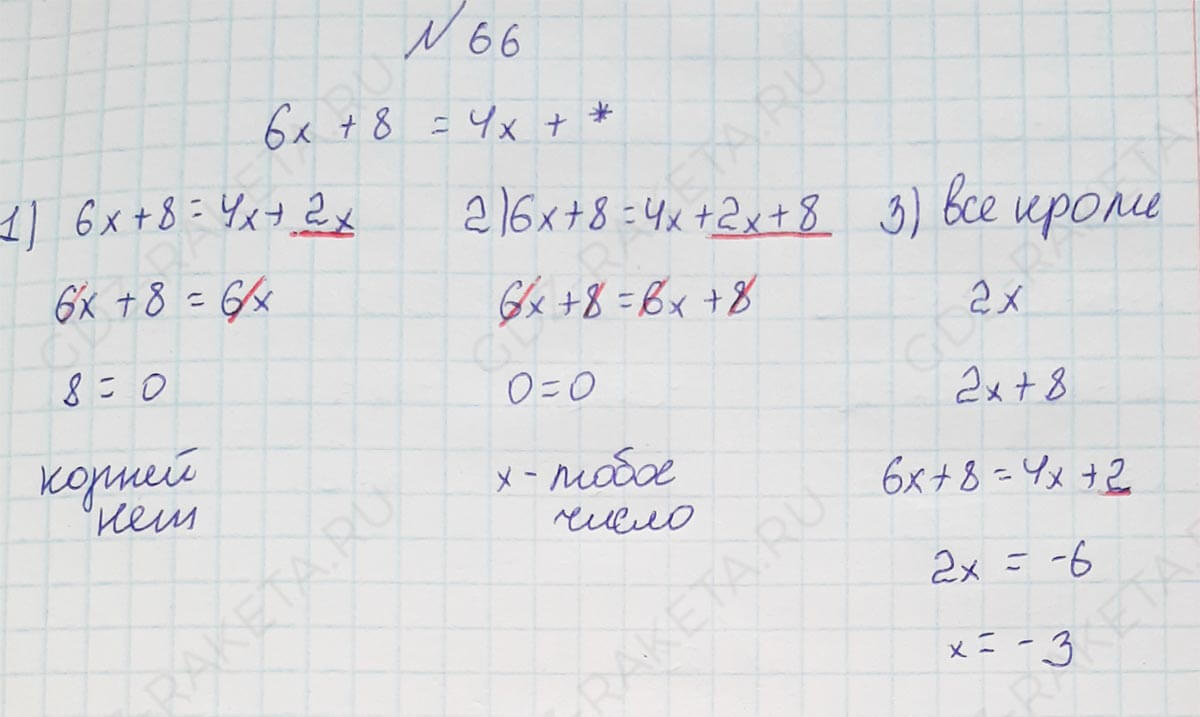 № 66
6x + 8 = 4x + *
1) 6x + 8 = 4x + 2x
6x + 8 = 6x
8 = 0
корней
нет
2) 6x + 8 = 4x + 2x + 8
6x + 8 = 6x + 8
0 = 0
x - любое
число
3) все кроме
2x
2x + 8
6x + 8 = 4x + 2
2x = -6
x = -3
GDZ-RAKETA.RU
GDZ-RAKETA.RU
GDZ-RAKETA.RU
GDZ-RAKETA.RU